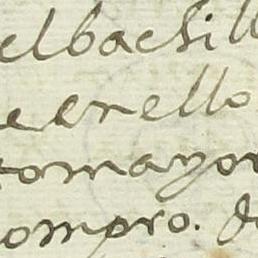 elbachill
e enello
tomayor
ompro. do